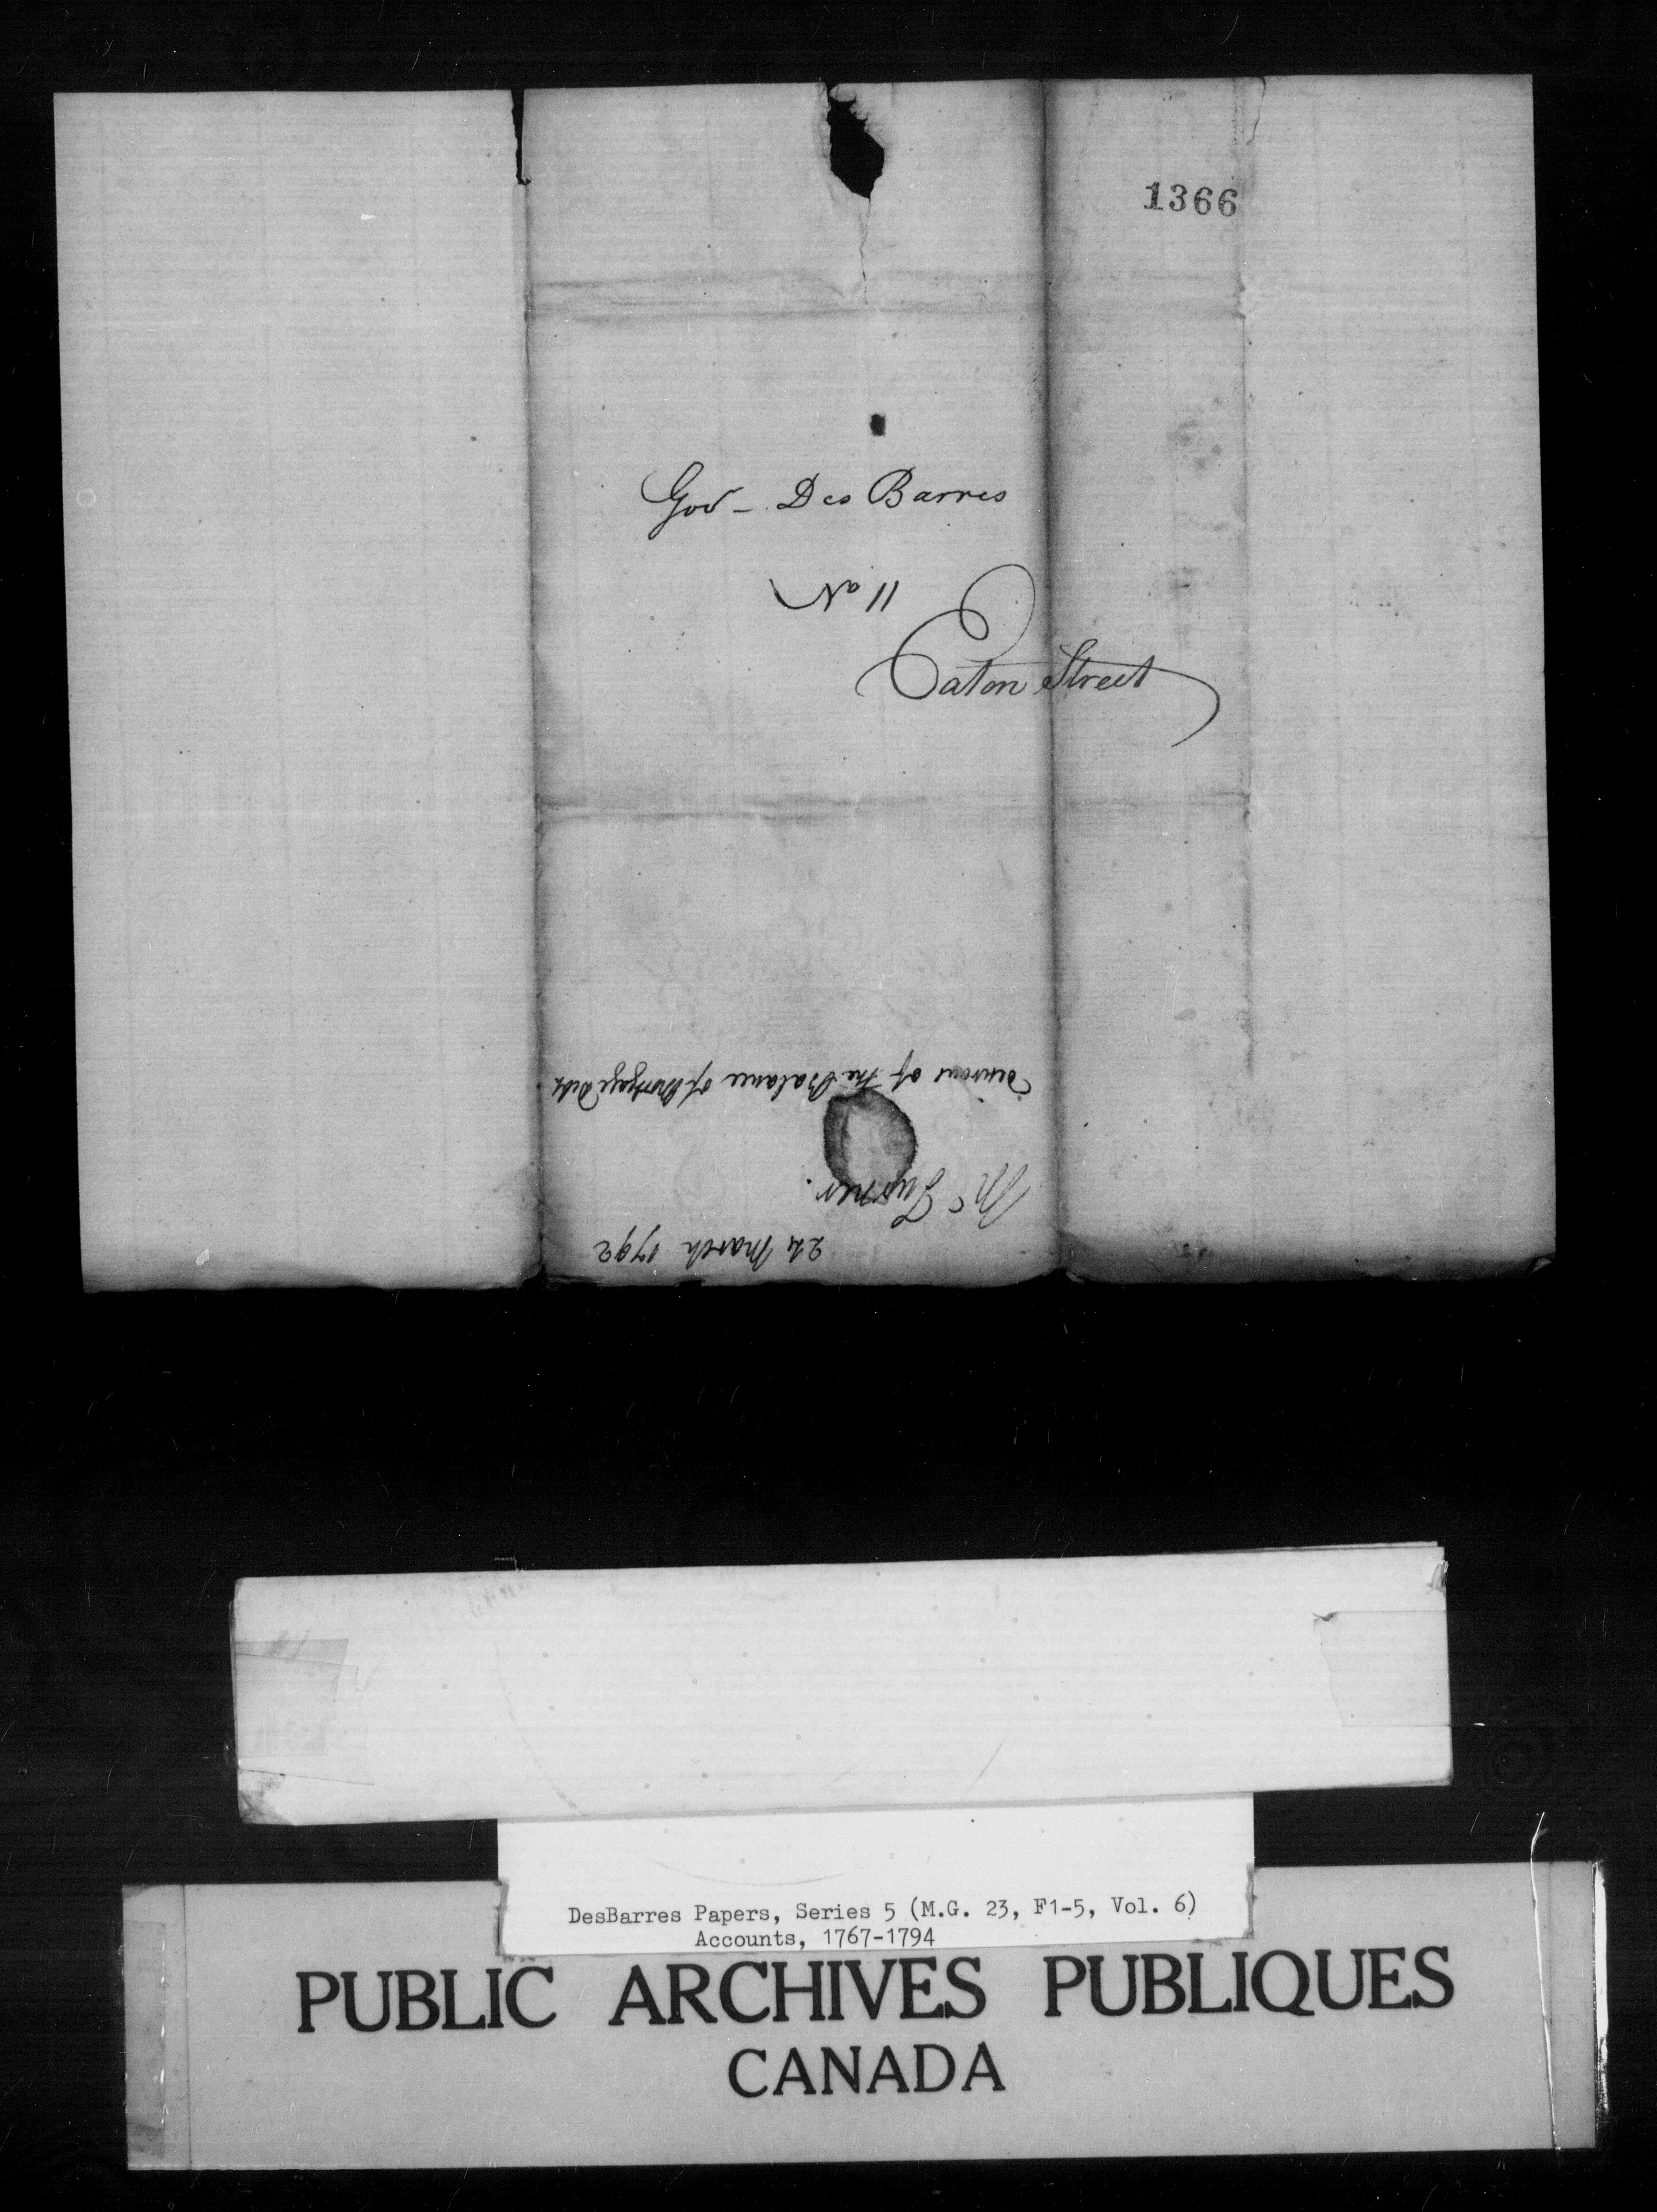 1366
Gov - Des Barres
No 11
Eaton Street
24 March 1792
Mc Turner.
of the Balance of Mortgage Debt
DesBarres Papers, Series 5 (M.G. 23, F1-5, Vol. 6)
Accounts, 1767-1794
PUBLIC ARCHIVES PUBLIQUES
CANADA